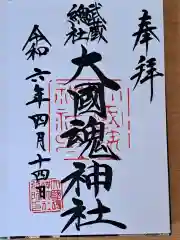 奉拝
武蔵
總社
大國魂神社
令和六年四月十四日